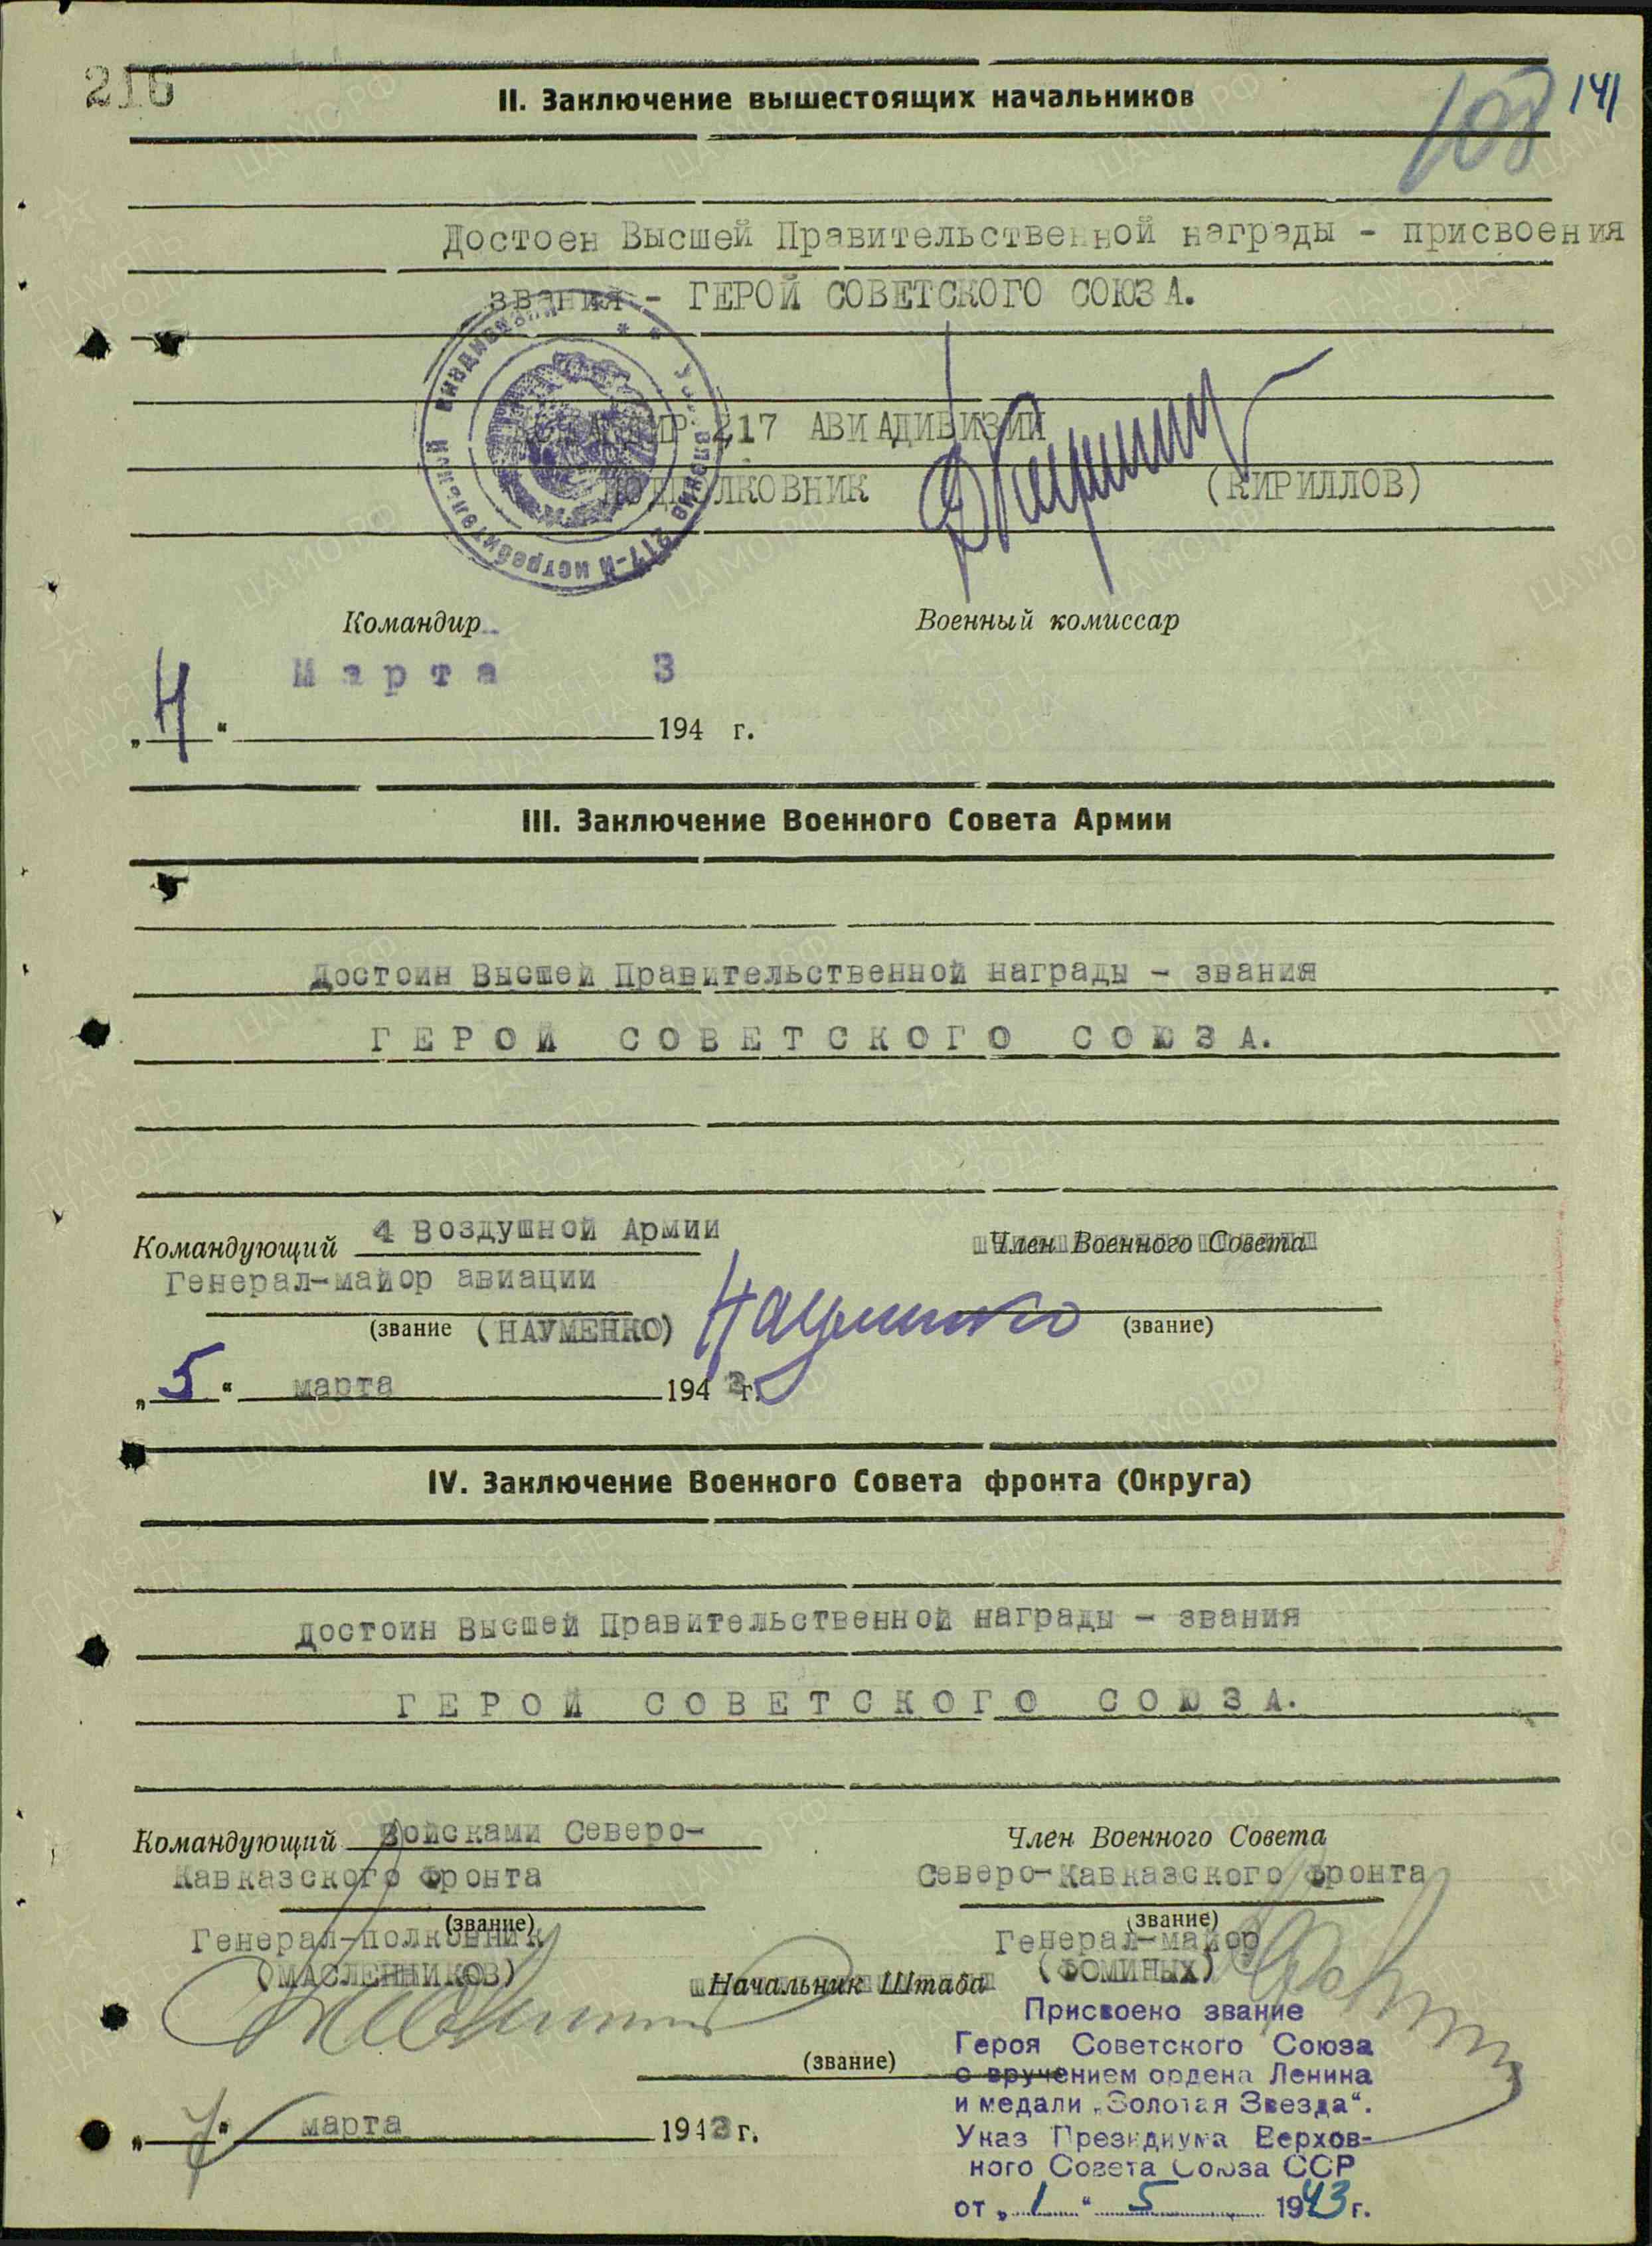 216
141
108
II. Заключение вышестоящих начальников
Достоен Высшей Правительственной награды - присвоения
звания - ГЕРОЙ СОВЕТСКОГО СОЮЗА.
КОМАНДИР 217 АВИАДИВИЗИИ
ПОДПОЛКОВНИК (КИРИЛЛОВ)
Управление 217-й истребительной авиадивизии
Командир Военный комиссар
Марта 3
„4“ 194 г.
III. Заключение Военного Совета Армии
Достоин Высшей Правительственной награды - звания
ГЕРОЙ СОВЕТСКОГО СОЮЗА.
Командующий 4 Воздушной Армии Член Военного Совета
Генерал-майор авиации
(звание (НАУМЕНКО) Науменко (звание)
„5“ марта 1943 г.
IV. Заключение Военного Совета фронта (Округа)
достоин Высшей Правительственной награды - звания
ГЕРОЙ СОВЕТСКОГО СОЮЗА.
Командующий Войсками Северо- Член Военного Совета
Кавказского Фронта Северо-Кавказского Фронта
(звание) (звание)
Генерал-полковник Генерал-майор
(МАСЛЕННИКОВ) Начальник Штаба (ФОМИНЫХ)
Присвоено звание
Героя Советского Союза
(звание) с вручением ордена Ленина
и медали „Золотая Звезда“.
„7“ марта 1943 г. Указ Президиума Верхов-
ного Совета Союза ССР
от „1“ 5 1943 г.
ЦАМО.РФ
ПАМЯТЬ
НАРОДА